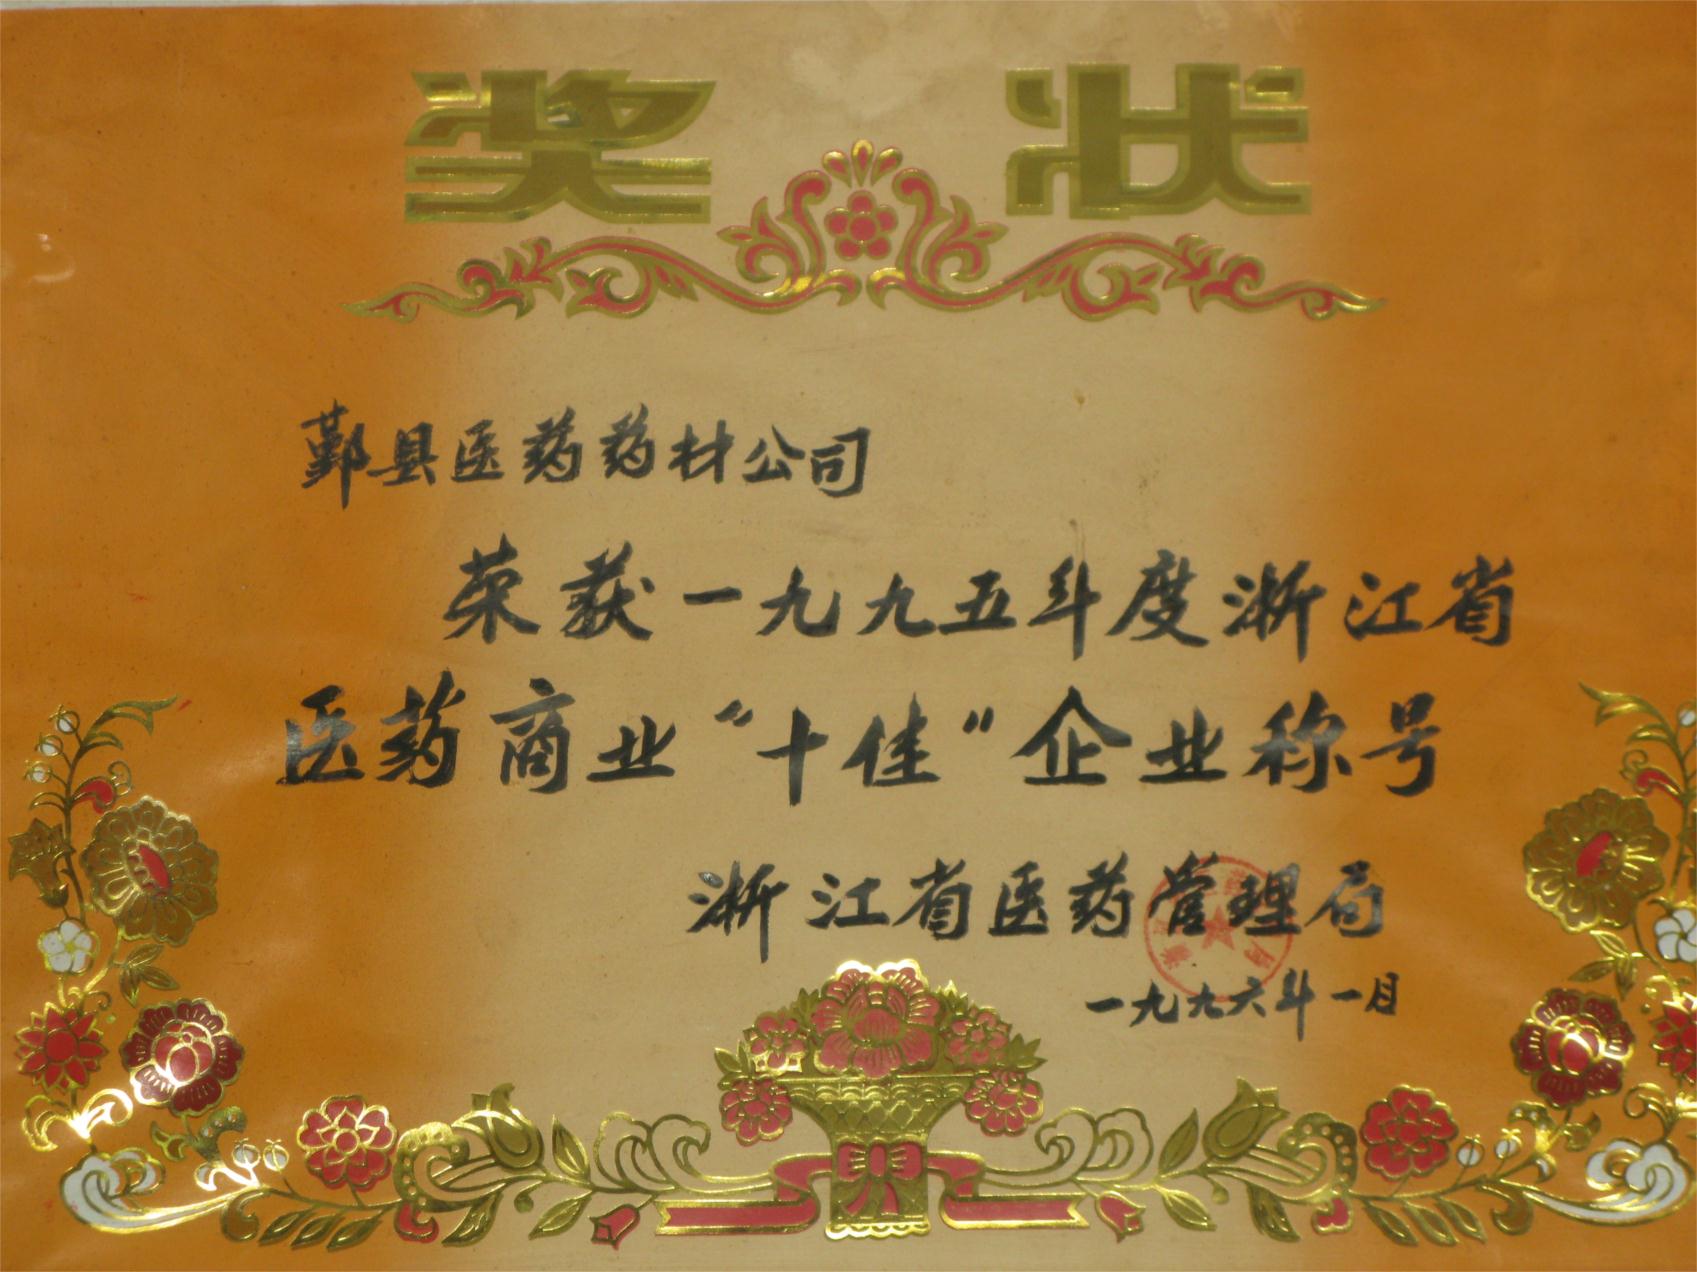 奖状
鄞县医药药材公司
荣获一九九五年度浙江省
医药商业“十佳”企业称号
浙江省医药管理局
一九九六年一月